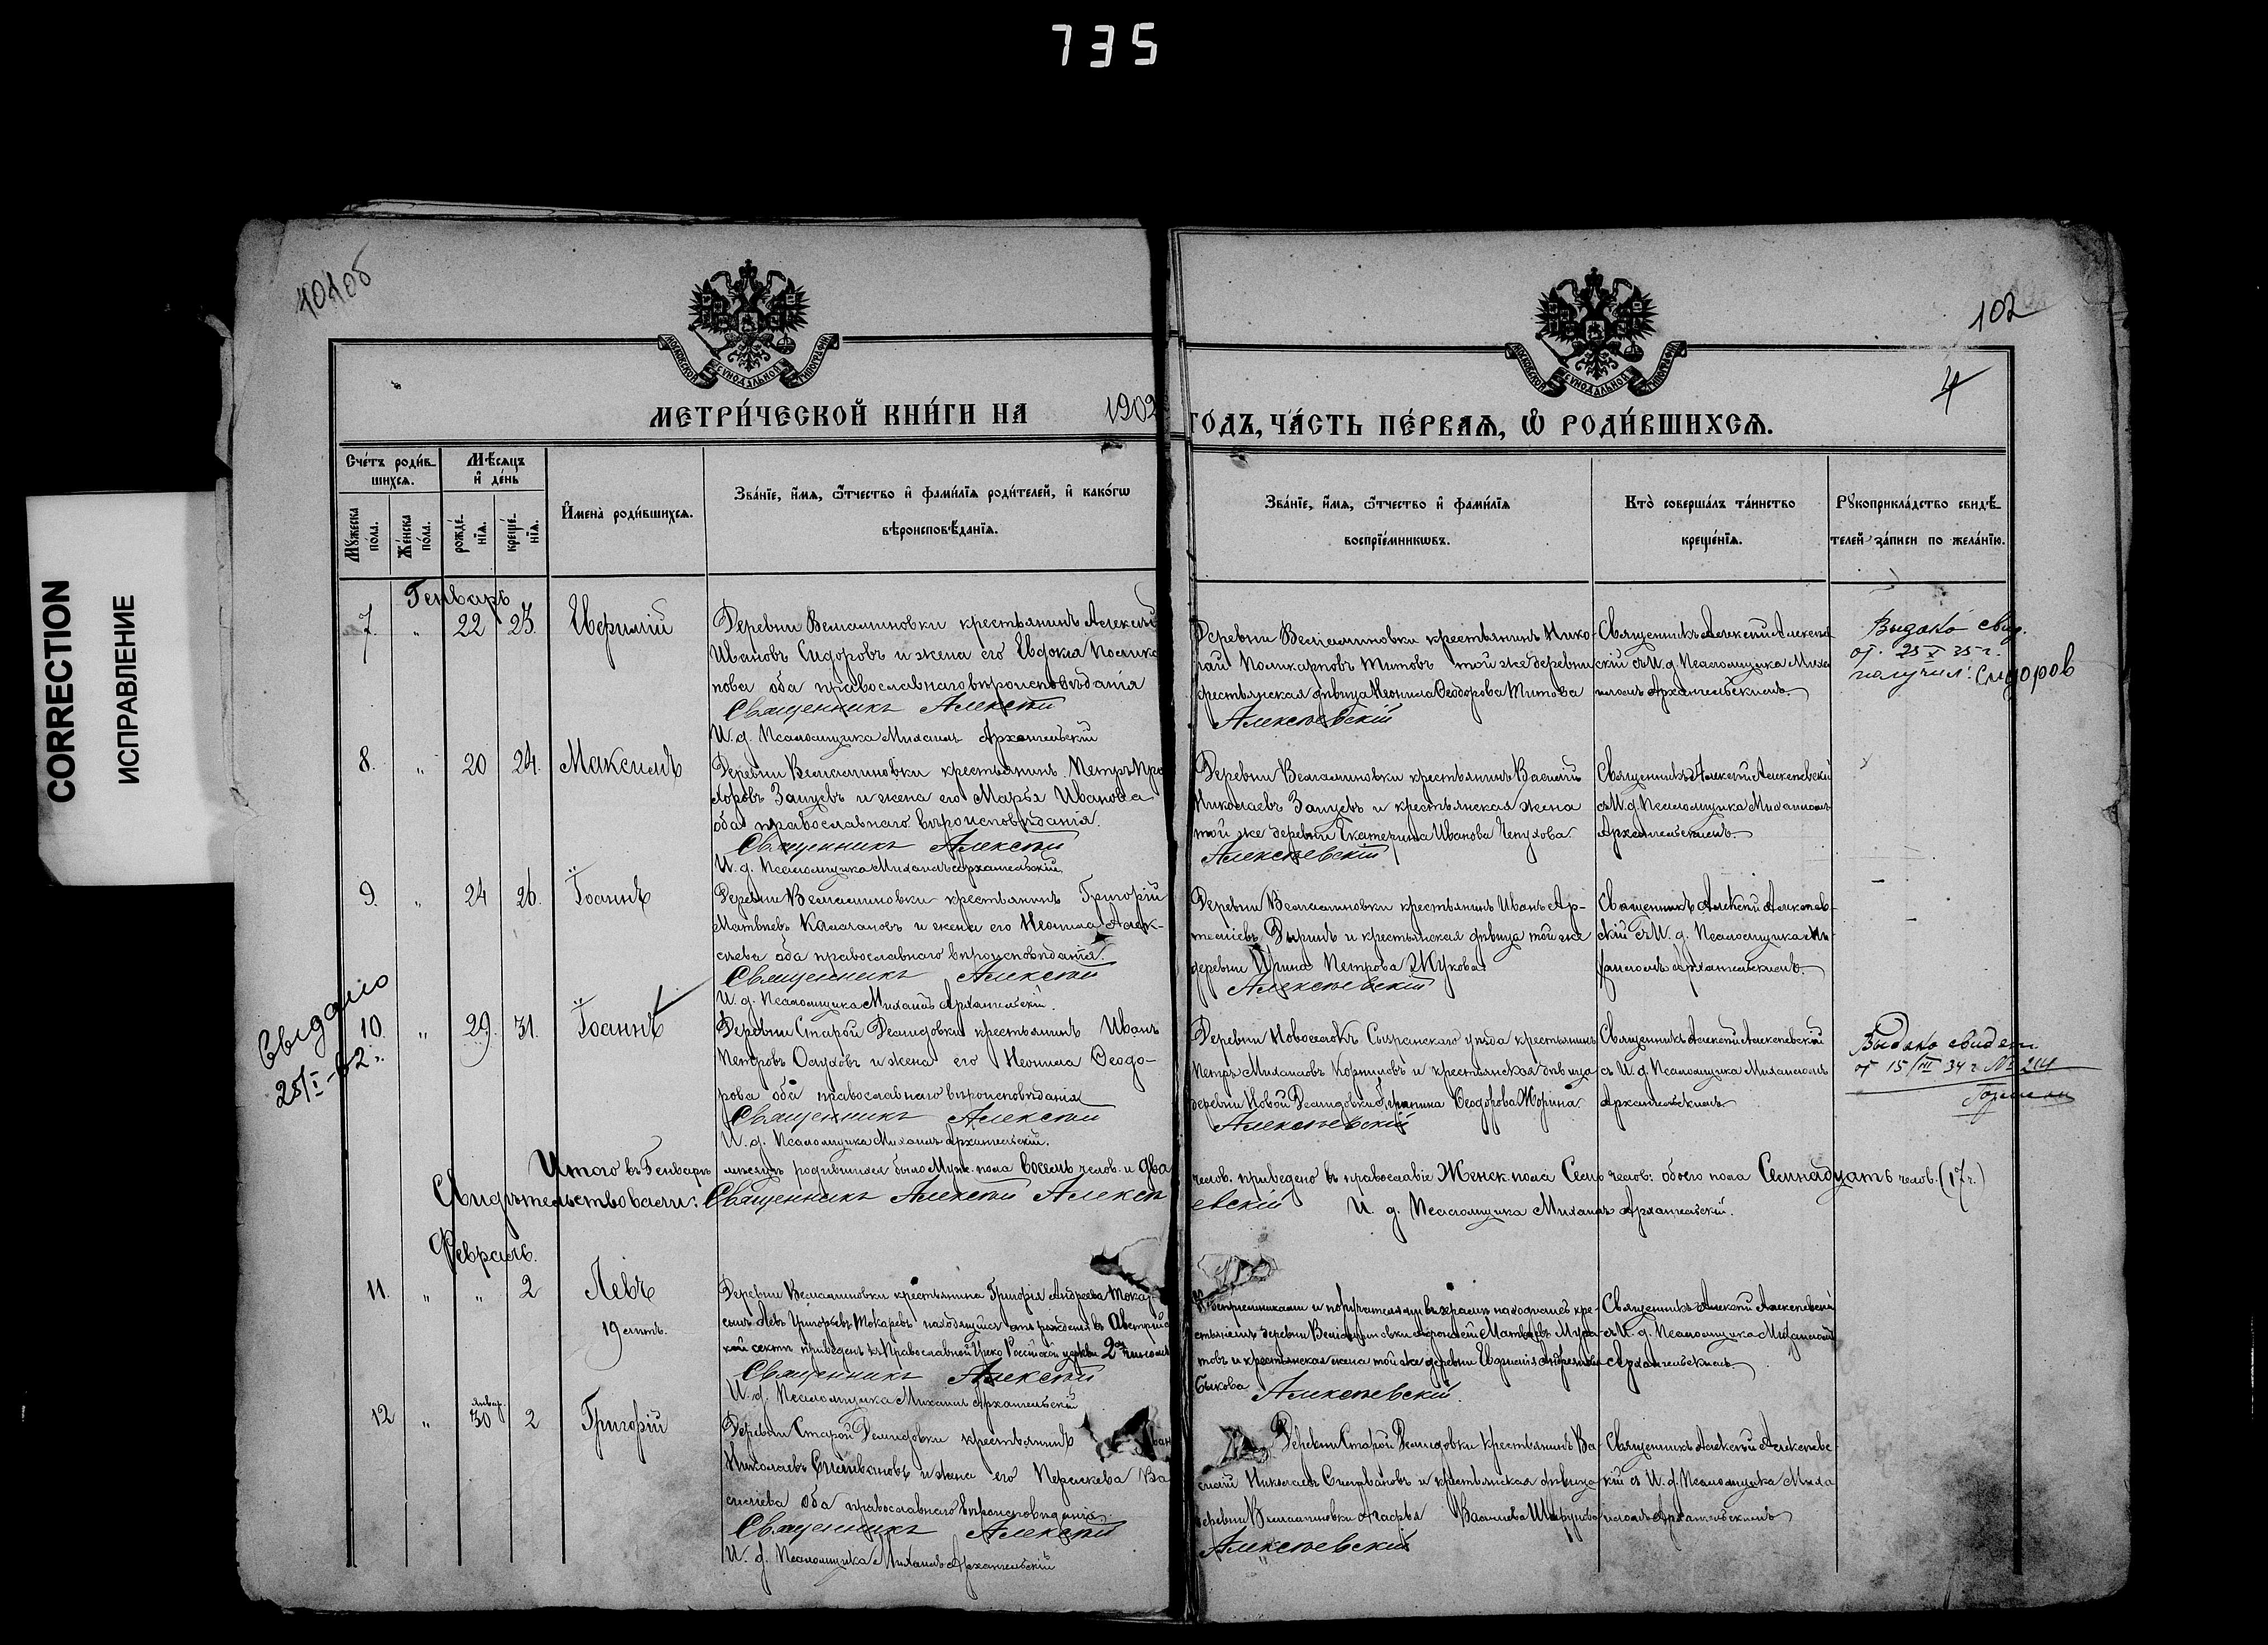 735
CORRECTION
ИСПРАВЛЕНИЕ
102
4
МОСКОВСКОЙ СѴНОДАЛЬНОЙ ТИПОГРАФІИ
МОСКОВСКОЙ СѴНОДАЛЬНОЙ ТИПОГРАФІИ
МЕТРИ́ЧЕСКОЙ КНИ́ГИ НА 1902 ГОДЪ, ЧА́СТЬ ПЕ́РВАѦ, Ѡ РОДИ́ВШИХСѦ.
Сче́тъ роди́в-
шихсѧ.
Мѣ́сѧцъ
и҆ де́нь
Мꙋ́жеска
по́ла.
Же́нска
по́ла.
рожде́-
нїѧ.
креще́-
нїѧ.
И҆мена̀ роди́вшихсѧ.
Зва́нїе, и҆́мѧ, ѻ҆́тчество и҆ фами́лїѧ роди́телей, и҆ како́гѡ
вѣроисповѣ́данїѧ.
Зва́нїе, и҆́мѧ, ѻ҆́тчество и҆ фами́лїѧ
воспрїе́мникѡвъ.
Кто̀ соверша́лъ та́инство
креще́нїѧ.
Рꙋкоприкла́дство свидѣ́-
телей за́писи по жела́нїю.
Генварь
7. " 22 23.
Деревни Веніаминовки крестьянинъ Алексѣй
Ивановъ Сидоровъ и жена его Евдокія Полика
пова оба православнаго вѣроисповѣданія
Священникъ Алексѣй
И. д. Псаломщика Михаилъ Архангельскій
Деревни Веніаминовки крестьянинъ Нико-
лай Поликарповъ Титовъ той же деревни
крестьянская дѣвица Неонила Ѳеодорова Титова
Алексѣевскій
Священникъ Алексѣй Алексѣев
скій съ И. д. Псаломщика Миха
иломъ Архангельскимъ.
Выдано свид.
от. 25 X 35 г.
получил: Сидоров
8. " 20 24. Максимъ
Деревни Веніаминовки крестьянинъ Петръ Про
хоровъ Зайцевъ и жена его Марья Иванова
оба православнаго вѣроисповѣданія.
Священникъ Алексѣй
И. д. Псаломщика Михаилъ Архангельскій.
Деревни Веніаминовки крестьянинъ Василій
Николаевъ Зайцевъ и крестьянская жена
той же деревни Екатерина Иванова
Алексѣевскій
Священникъ Алексѣй Алексѣевскій
съ И. д. Псаломщика Михаиломъ
Архангельскимъ
9. " 24 26. Іоаннъ
Деревни Веніаминовки крестьянинъ Григорій
Матвѣевъ и жена его Неонила Алек-
сѣева оба православнаго вѣроисповѣданія.
Священникъ Алексѣй
И. д. Псаломщика Михаилъ Архангельскій.
Деревни Веніаминовки крестьянинъ Иванъ Ар-
темьевъ и крестьянская дѣвица той же
деревни Ирина Петрова Жукова
Алексѣевскій
Священникъ Алексѣй Алексѣев-
скій съ И. д. Псаломщика Ми-
хаиломъ Архангельскимъ.
Выдано
10. " 29. 31. Іоаннъ
Деревни Старой Демидовки крестьянинъ Иванъ
Петровъ и жена его Неонила Ѳеодо-
рова оба православнаго вѣроисповѣданія
Священникъ Алексѣй
И. д. Псаломщика Михаилъ Архангельскій.
Деревни Новоселокъ Сызранскаго уѣзда крестьянинъ
Петръ Михаиловъ Корниловъ и крестьянская дѣвица
деревни Новой Демидовки Ѳеодорова Жорина
Алексѣевскій
Священникъ Алексѣй Алексѣевскій
съ И. д. Псаломщика Михаиломъ
Архангельскимъ.
Выдано свидет.
от 15/III 34 г.
Итого въ Генварѣ мѣсяцѣ родившихся было Муж. пола восемь челов. и два челов. приведено въ православіе Женск. пола Семь челов. обоего пола Семнадцать челов. (17 ч.)
Свидѣтельствовали: Священникъ Алексѣй Алексѣевскій И. д. Псаломщика Михаилъ Архангельскій.
Февраль.
11. " " 2 Левъ
19 лѣтъ.
Деревни Веніаминовки крестьянина Григорія Андреева Токар
сынъ Левъ Григорьевъ Токаревъ находящійся отъ рожденія въ Австрійс
кой сектѣ приведенъ къ Православной Греко Россійской церкви 2мъ чиномъ
Священникъ Алексѣй
И. д. Псаломщика Михаилъ Архангельскій
Воспріемниками и поручителями въ храмѣ находились кре-
стьянинъ деревни Веніаминовки Матвѣевъ
товъ и крестьянская жена той же деревни
Быкова Алексѣевскій.
Священникъ Алексѣй Алексѣевскій
съ И. д. Псаломщика Михаиломъ
Архангельскимъ.
12 " январ. 30 2 Григорій
Деревни Старой Демидовки крестьянинъ
Николаевъ и жена его Параскева Ва
сильева оба православнаго вѣроисповѣданія.
Священникъ Алексѣй
И. д. Псаломщика Михаилъ Архангельскій
Деревни Старой Демидовки крестьянинъ Ва
силій Николаевъ и крестьянская дѣвица
деревни Веніаминовки Васильева
Алексѣевскій
Священникъ Алексѣй Алексѣевс
кій съ И. д. Псаломщика Миха
иломъ Архангельскимъ